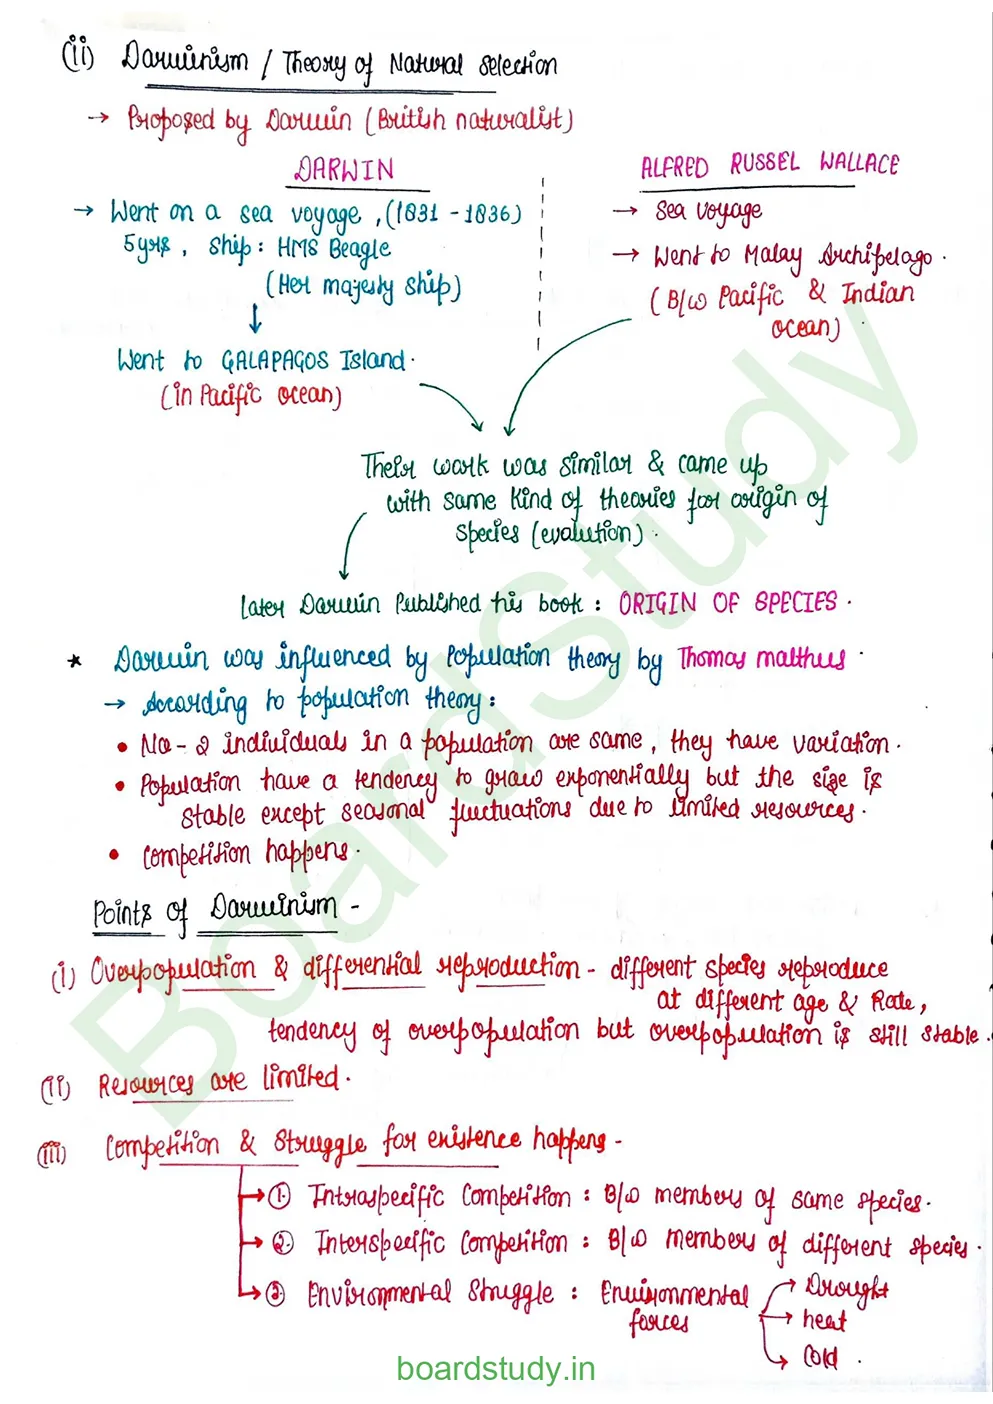 (ii) Darwinism / Theory of Natural selection
→ Proposed by Darwin (British naturalist)
DARWIN
→ Went on a sea voyage, (1831 - 1836)
5yrs, ship: HMS Beagle
(Her majesty ship)
Went to GALAPAGOS Island.
(in Pacific ocean)
ALFRED RUSSEL WALLACE
→ Sea voyage
→ Went to Malay Archipelago.
(B/w Pacific & Indian
ocean)
Their work was similar & came up
with same kind of theories for origin of
species (evalution).
later Darwin Published his book: ORIGIN OF SPECIES.
★ Darwin was influenced by Population theory by Thomas malthus.
→ According to population theory:
• No - 2 individuals in a population are same, they have variation.
• Population have a tendency to grow exponentially but the size is
stable except seasonal fluctuations due to limited resources.
• Competition happens.
Points of Darwinism -
(i) Overpopulation & differential reproduction - different species reproduce
at different age & Rate,
tendency of overpopulation but overpopulation is still stable.
(ii) Resources are limited.
(iii) Competition & Struggle for existence happens -
→ ①. Intraspecific Competition: B/w members of same species.
→ ②. Interspecific Competition: B/w members of different species.
→ ③. Environmental Struggle: Environmental
forces
→ Drought
→ heat
→ Cold.
BoardStudy
boardstudy.in